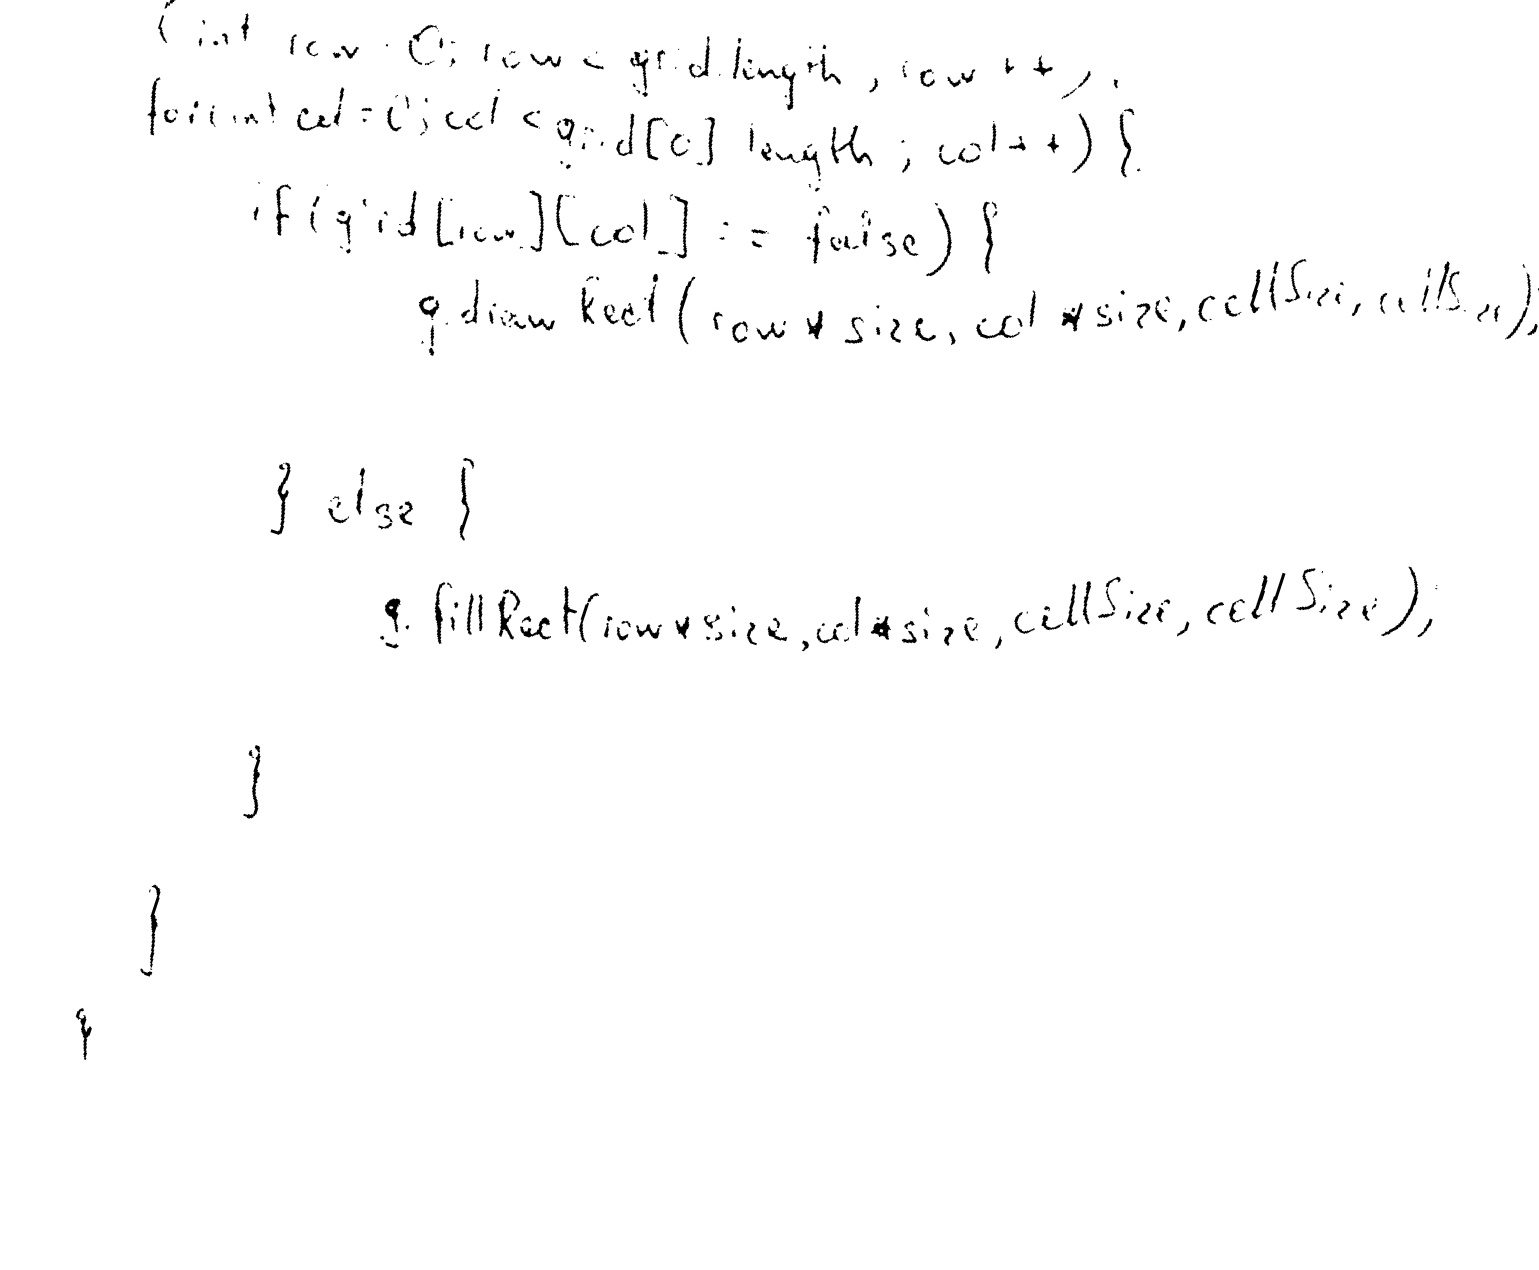 (int row = 0; row < grid.length; row++)
for(int col = 0; col < grid[0].length; col++) {
if(grid[row][col] == false) {
g.drawRect(row * size, col * size, cellSize, cellSize);
} else {
g.fillRect(row * size, col * size, cellSize, cellSize);
}
}
}